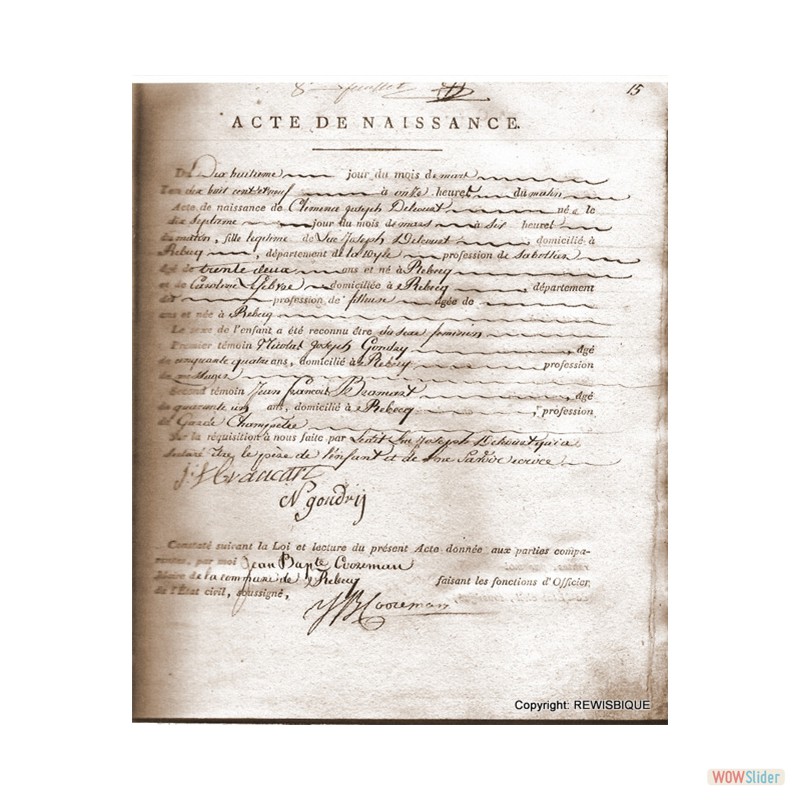 15
ACTE DE NAISSANCE.
Du Dix huitieme jour du mois de mars
l'an dix huit cent et neuf à onze heures du matin
Acte de naissance de Clemence joseph Delcourt né e le
dix septieme jour du mois de mars à six heures
du matin, fille legitime de Joseph Delcourt, domicilié à
Rebecq, département de la Dyle profession de Sabottier
âgé de trente deux ans et né à Rebecq
et de Caroline domiciliée à Rebecq, département
dit profession de fileuse âgée de
ans et née à Rebecq
Le sexe de l'enfant a été reconnu être du sexe feminin
Premier témoin Nicolas Joseph Gondry, âgé
de cinquante quatre ans, domicilié à Rebecq profession
de
Second témoin Jean francois, âgé
de quarante un ans, domicilié à Rebecq, profession
de Garde Champetre
Sur la réquisition à nous faite par Joseph Delcourt qui a
declaré être le père de l'enfant et de ne savoir ecrire
N gondrij
Constaté suivant la Loi et lecture du présent Acte donnée aux parties compa-
rantes, par moi Jean Bapte Cooreman
Maire de la commune de Rebecq faisant les fonctions d'Officier
de l'État civil, soussigné,
JB Cooreman
Copyright: REWISBIQUE
WOWSlider